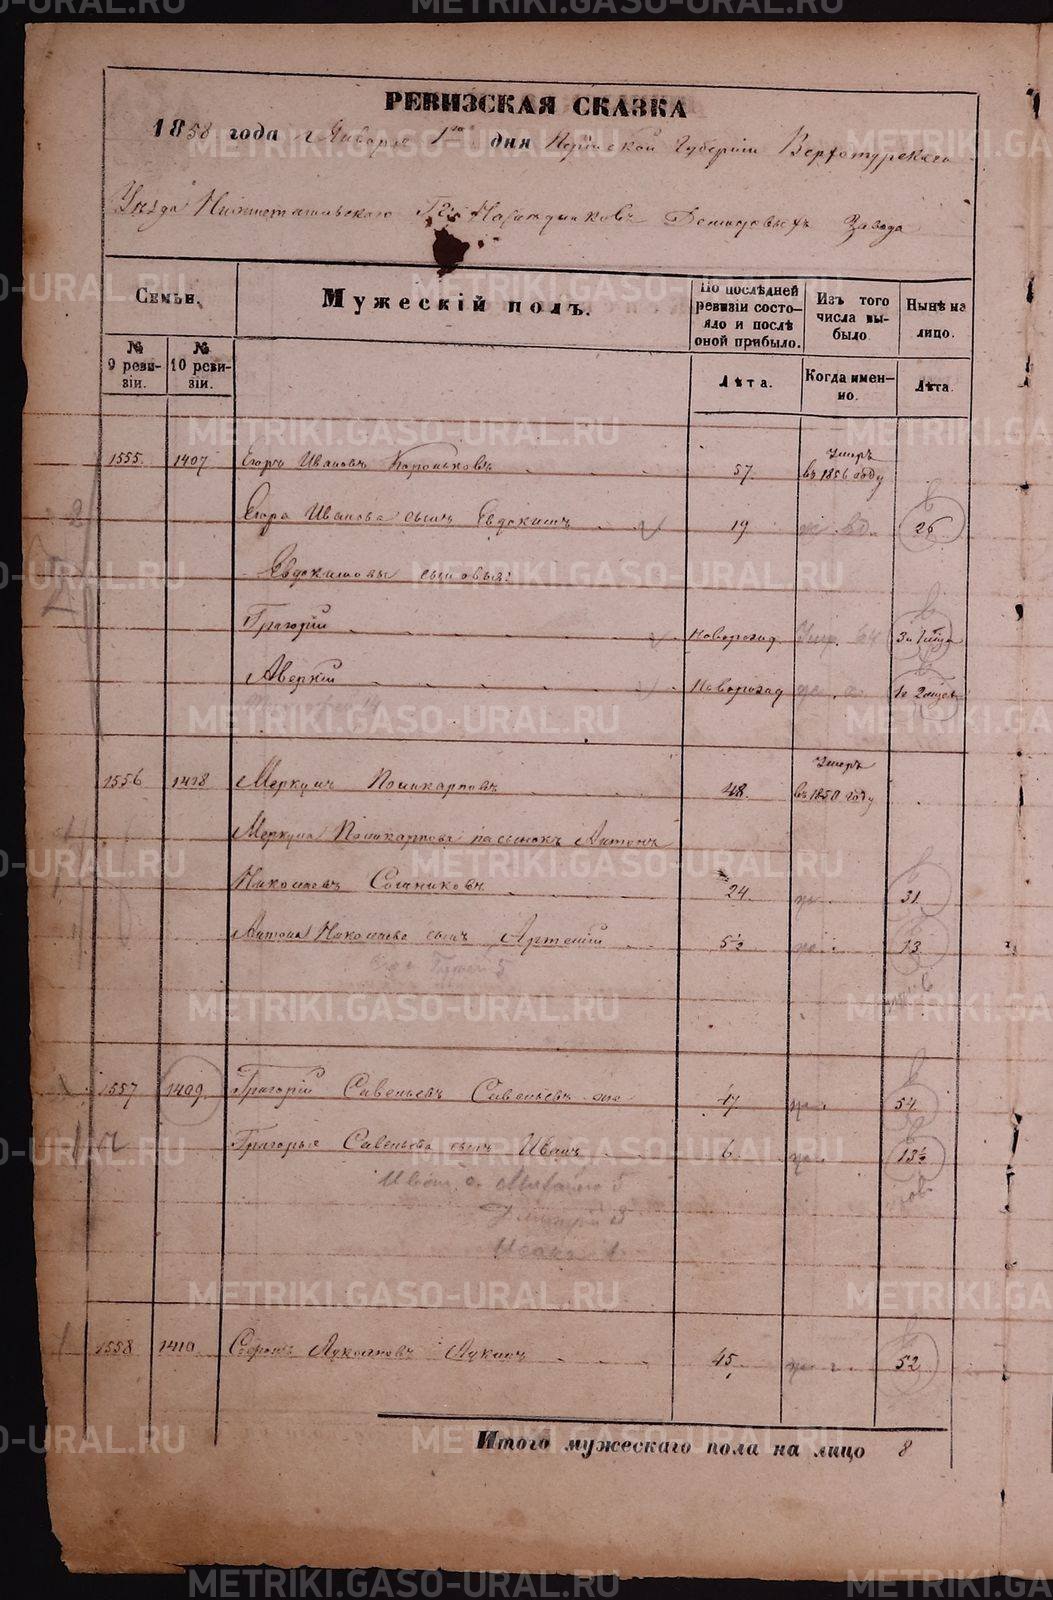 РЕВИЗСКАЯ СКАЗКА
1858 года Января 1го дня Пермской Губернiи Верхотурскаго
Уѣзда Нижнетагильскаго Гг. Наслѣдниковъ Демидовыхъ Завода
Семьи.
Мужескій полъ.
По послѣдней ревизіи состояло и послѣ оной прибыло.
Изъ того числа выбыло.
Нынѣ на лицо.
№ 9 ревизіи.
№ 10 ревизіи.
Лѣта.
Когда именно.
Лѣта.
1555. 1407 Егоръ Ивановъ 57. Умеръ въ 1856 году
Егора Иванова сынъ Евдокимъ 19 26
Евдокимовы сыновья:
Григорій Новорожд.
Аверкій Новорожд
1556 1408 Меркулъ Поликарповъ 48. Умеръ въ 1850 году
Меркула Поликарпова пасынокъ Антонъ
Николаевъ 24. 31
Антона Николаева сынъ Артемій 5½ 13
1557 1409 Григорій Савельевъ Савельевъ же 47 54
Григорья Савельева сынъ Иванъ 6. 13½
1558 1410 Софронъ Лукояновъ Лукинъ 45. 52
Итого мужескаго пола на лицо 8
METRIKI.GASO-URAL.RU